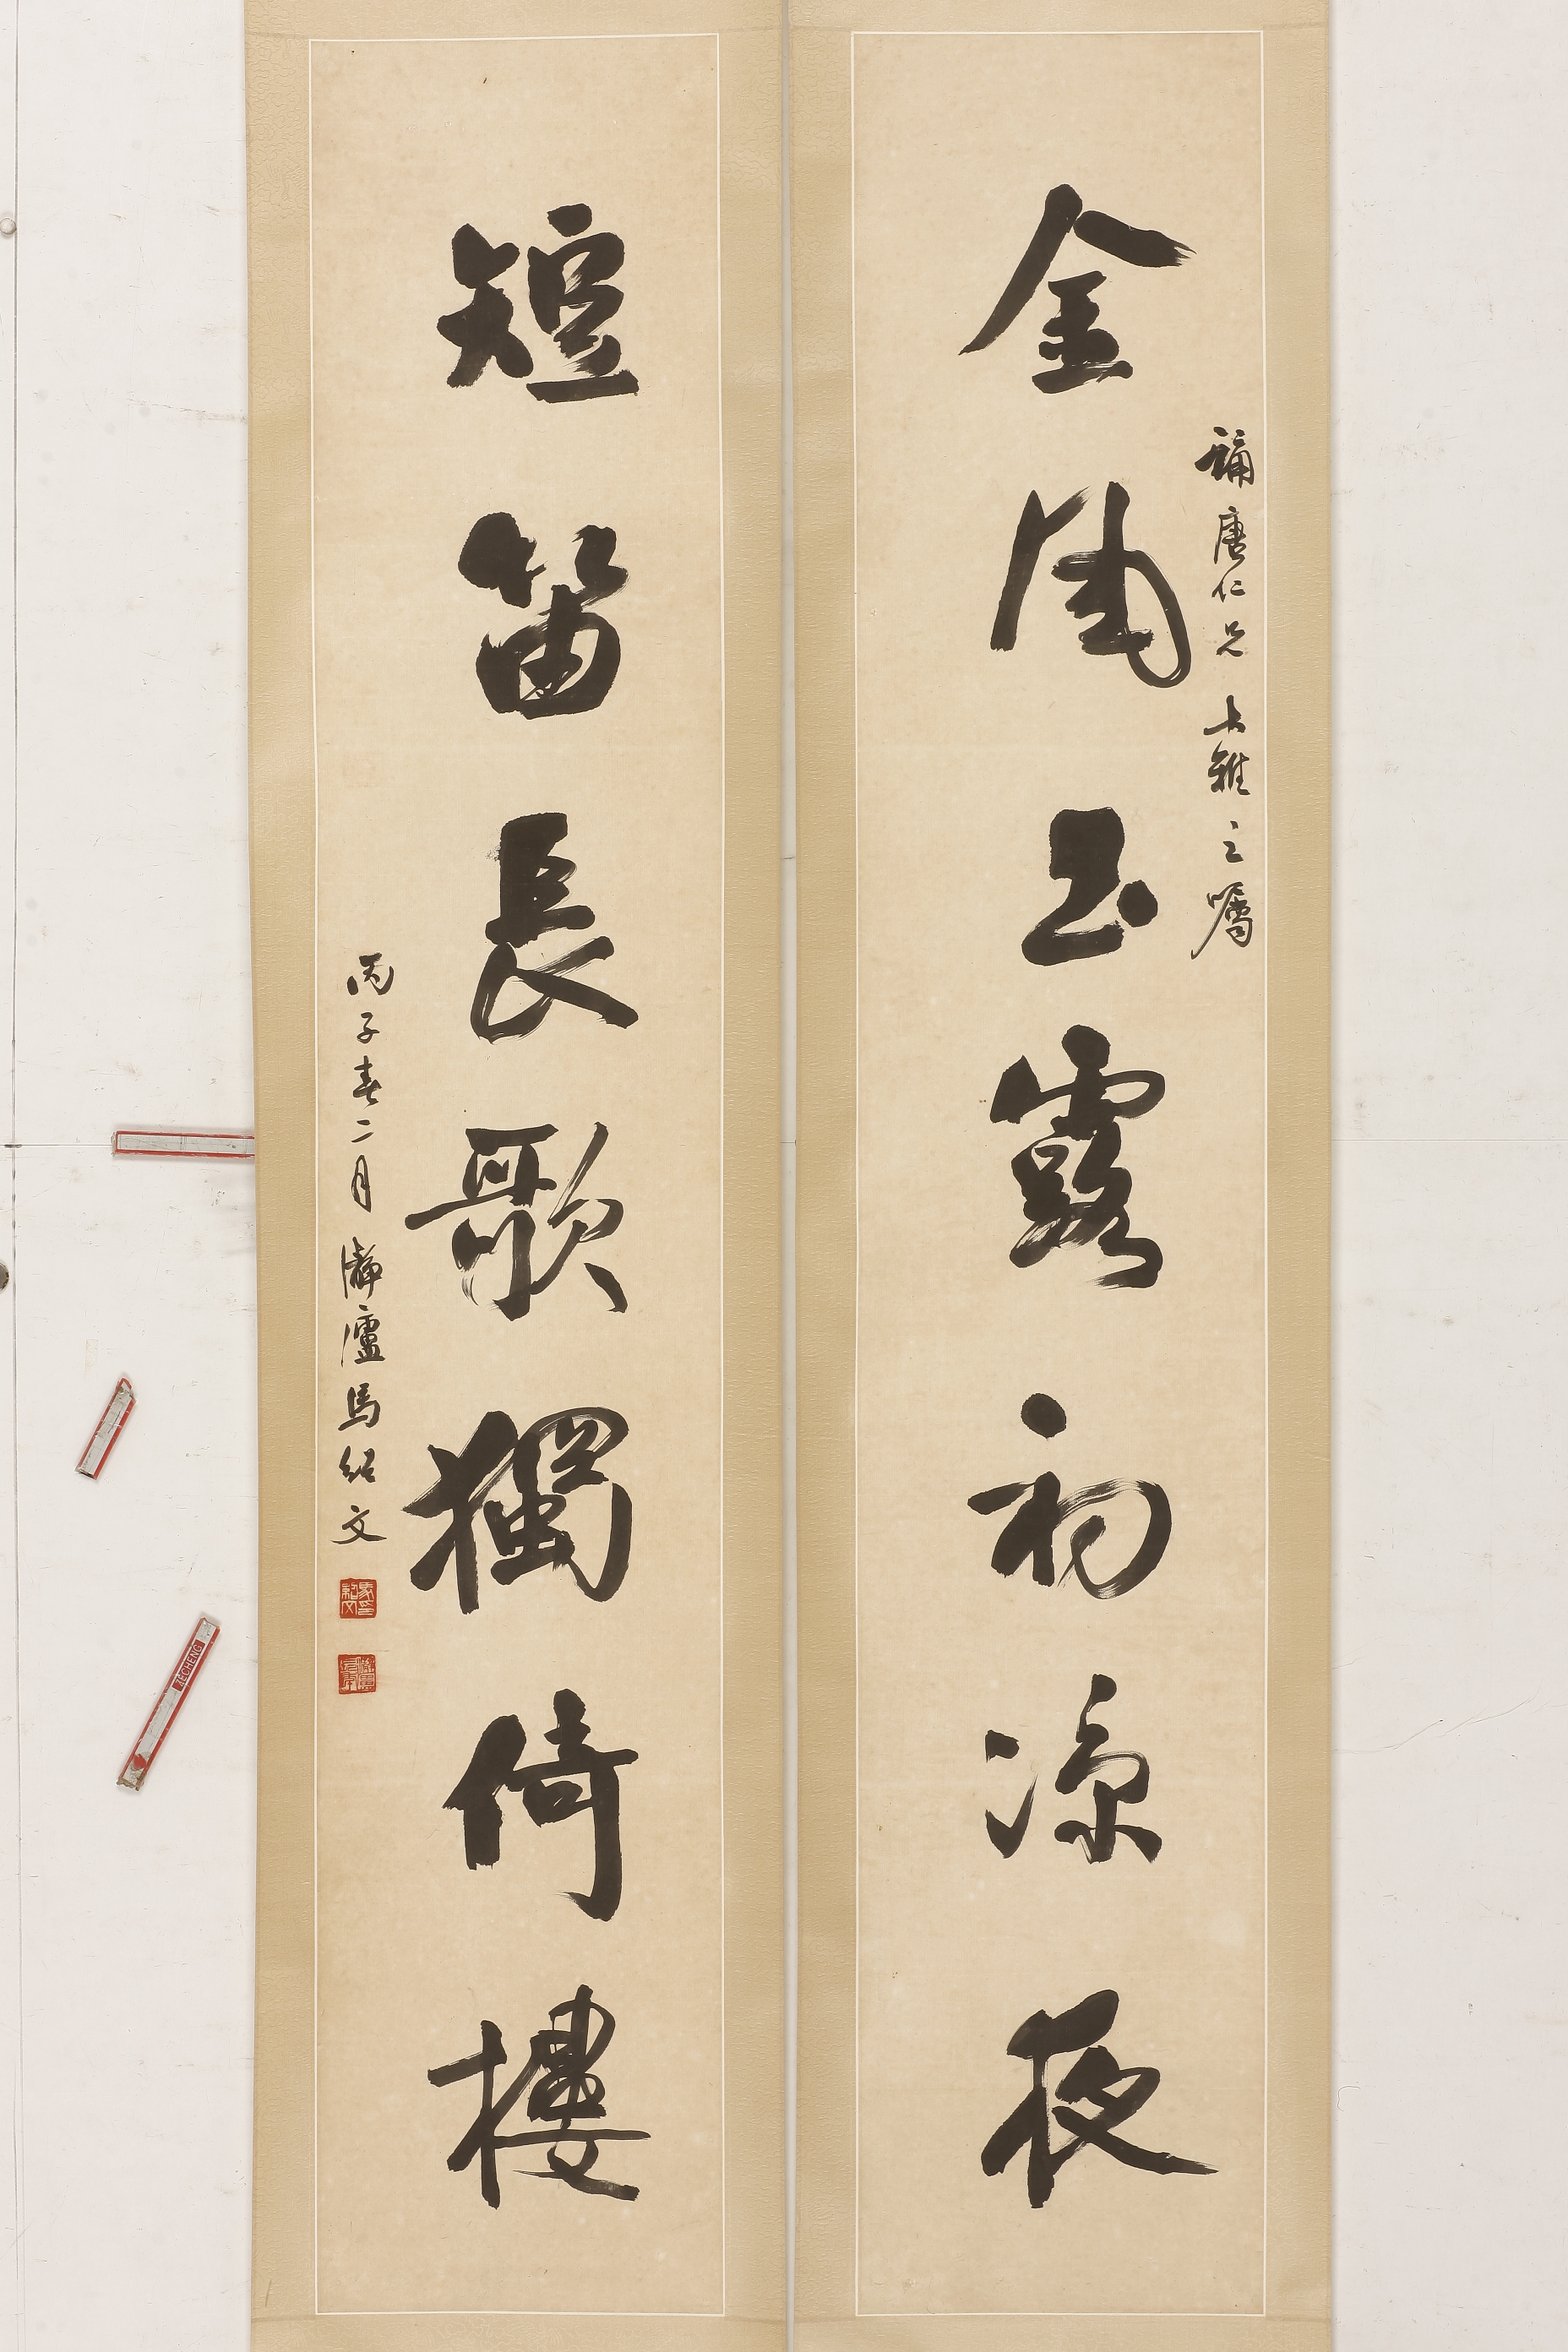 唐仁兄大雅之囑
金風玉露初涼夜
短笛長歌獨倚樓
丙子春二月瀞廬馬紹文
馬印紹文